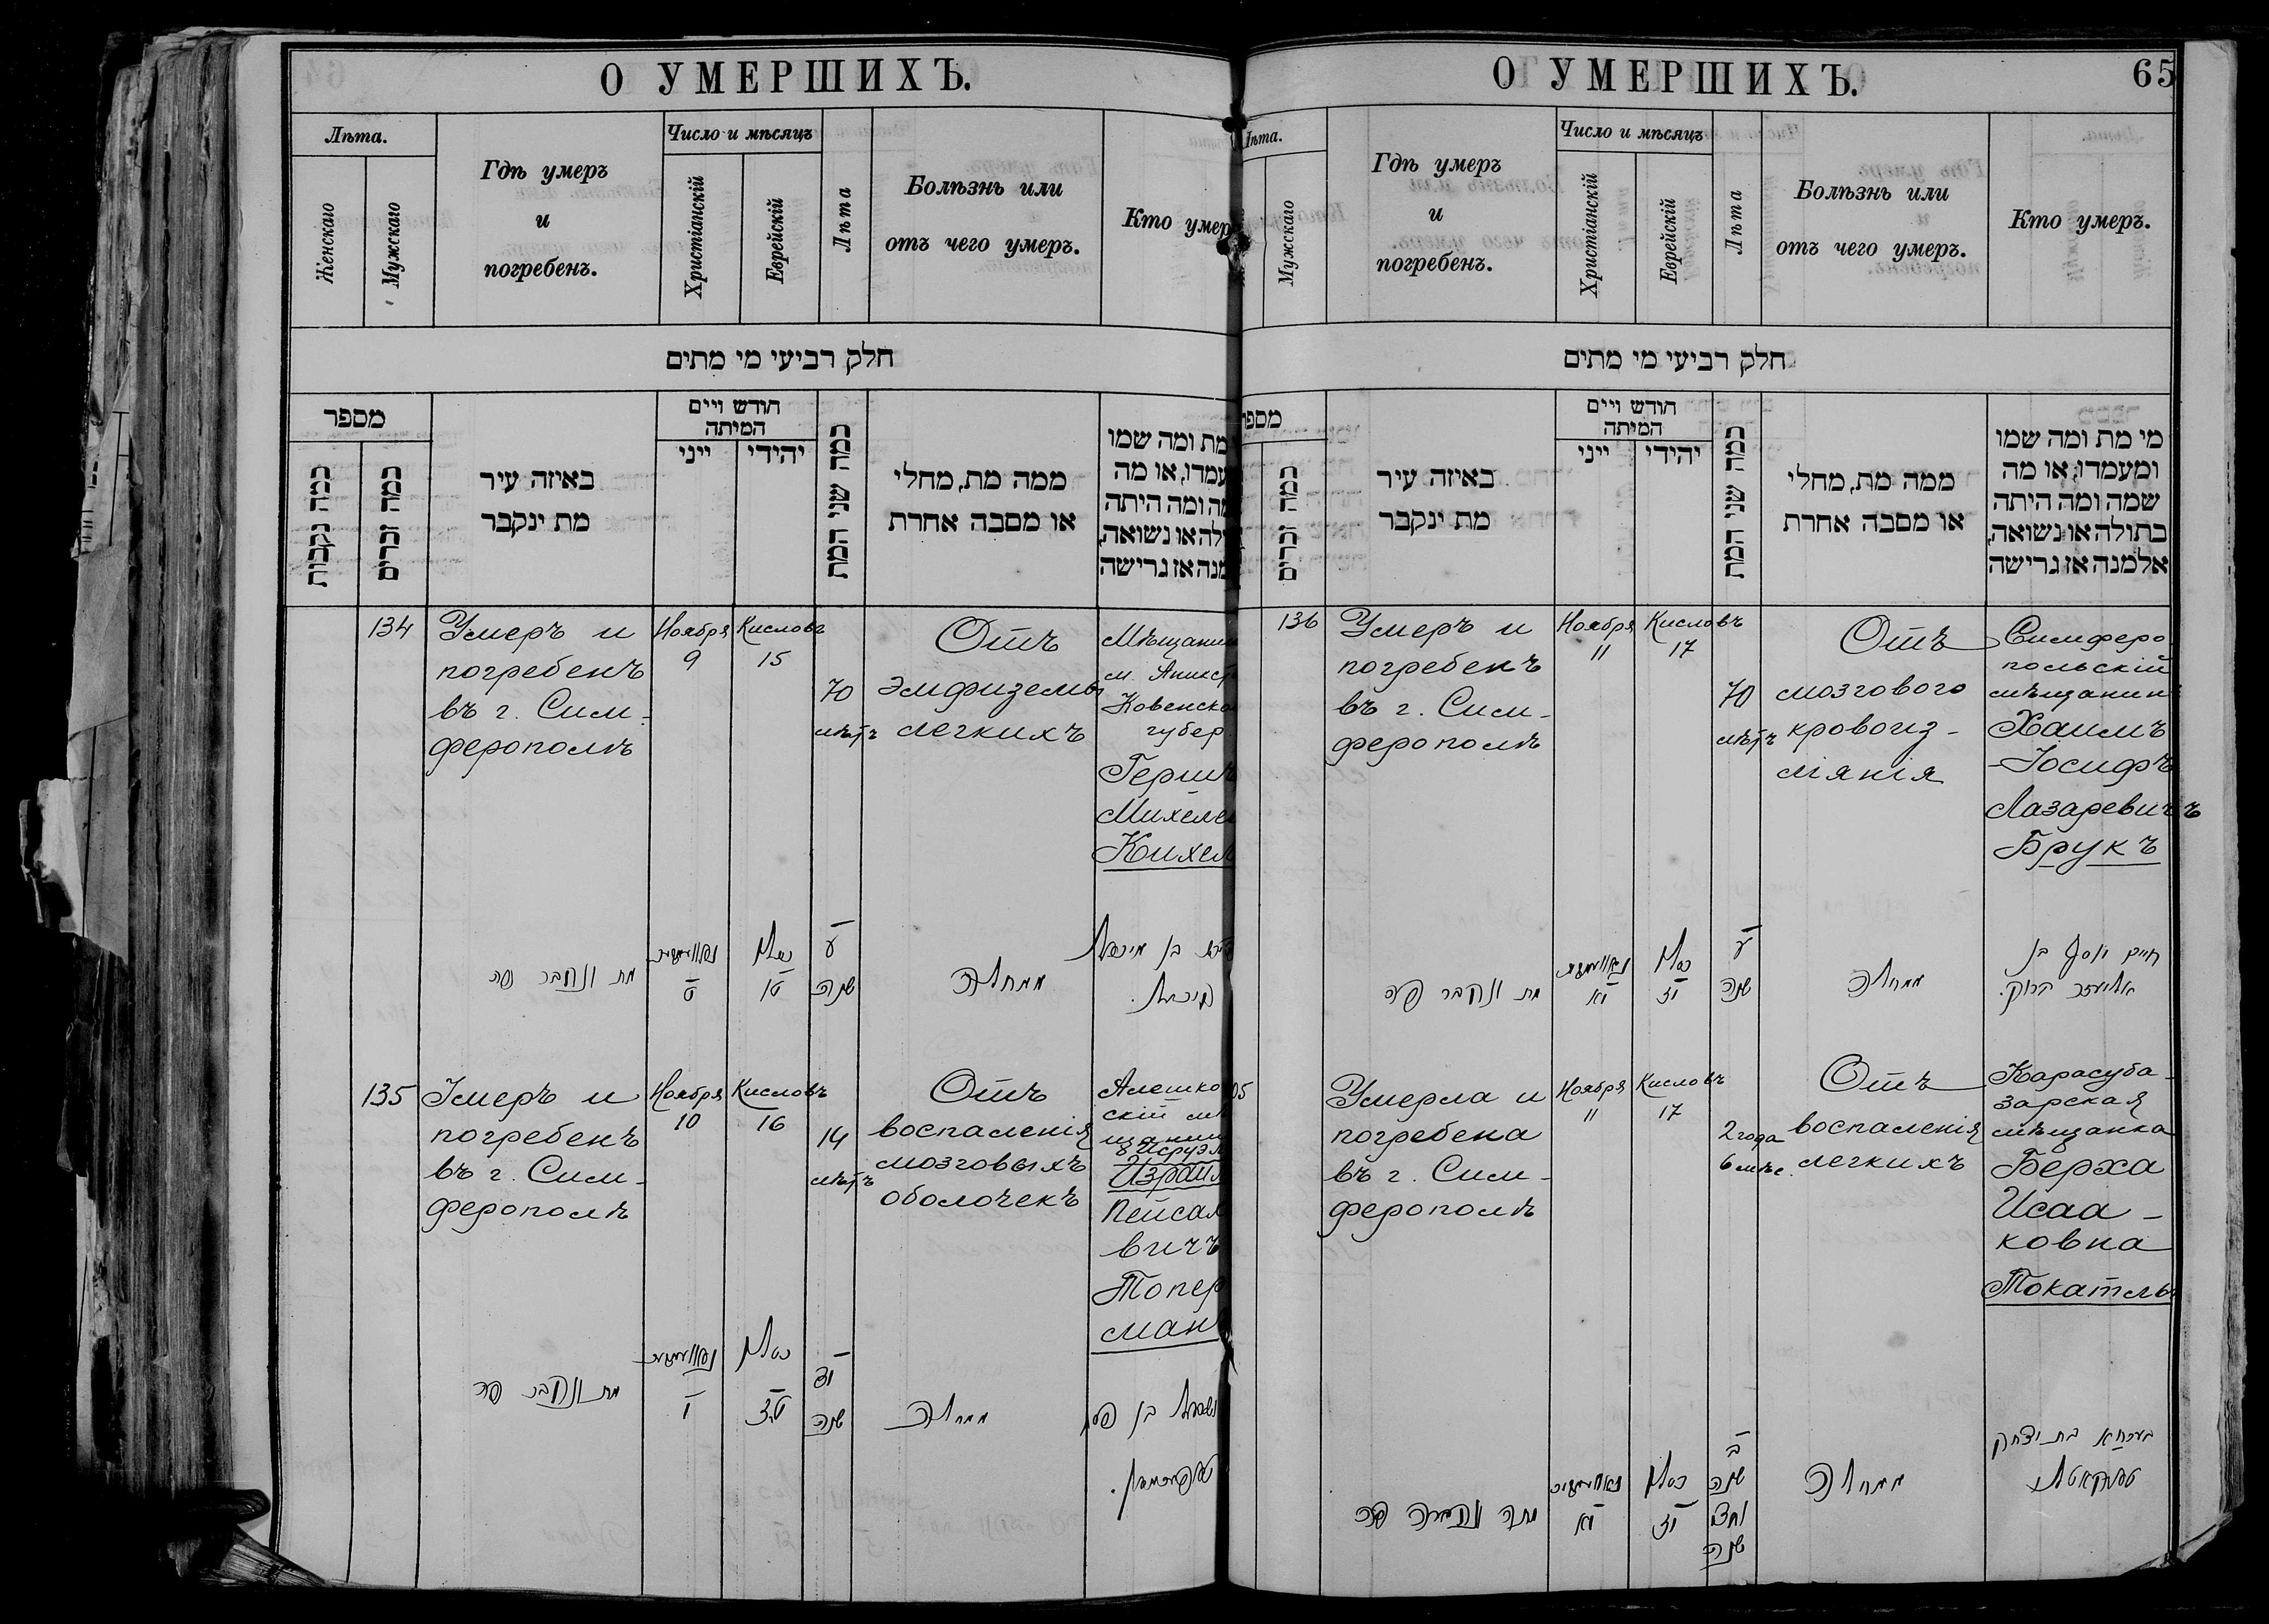 О УМЕРШИХЪ.
Лѣта.
Женскаго
Мужскаго
Гдѣ умеръ
и
погребенъ.
Число и мѣсяцъ
Христіанскій
Еврейскій
Лѣта
Болѣзнь или
отъ чего умеръ.
Кто умер
חלק רביעי מי מתים
מספר
כמה נקבות
כמה זכרים
באיזה עיר
מת ינקבר
חודש ויים
המיתה
ייני
יהידי
כמה שני המת
ממה מת, מחלי
או מסבה אחרת
מת ומה שמו
עמדו, או מה
מה ומה היתה
ולה או נשואה,
מנה אז גרישה
134
Умеръ и
погребенъ
въ г. Сим-
ферополѣ
Ноября
9
Кисловъ
15
70
лѣтъ
Отъ
эмфиземы
легкихъ
Мѣщанин
м. Аникст
Ковенско
губер.
Герш
Михеле
Кихел
מת ונקבר פה
נאוועמבער
ט
כסלו
טו
ע
שנה
ממחלה
בן מיכאל
135
Умеръ и
погребенъ
въ г. Сим-
ферополѣ
Ноября
10
Кисловъ
16
14
лѣтъ
Отъ
воспаленія
мозговыхъ
оболочекъ
Алешко
скій мѣ
щанин
Исруэл
Израил
Пейсах
вичъ
Топер
ман
מת ונקבר פה
נאוועמבער
י
כסלו
טז
יד
שנה
ממחלה
ישראל בן פסח
О УМЕРШИХЪ.
65
Лѣта.
Мужскаго
Гдѣ умеръ
и
погребенъ.
Число и мѣсяцъ
Христіанскій
Еврейскій
Лѣта
Болѣзнь или
отъ чего умеръ.
Кто умеръ.
חלק רביעי מי מתים
מספר
כמה זכרים
באיזה עיר
מת ינקבר
חודש ויים
המיתה
ייני
יהידי
כמה שני המת
ממה מת, מחלי
או מסבה אחרת
מי מת ומה שמו
ומעמדו, או מה
שמה ומה היתה
בתולה או נשואה,
אלמנה אז גרישה
136
Умеръ и
погребенъ
въ г. Сим-
ферополѣ
Ноября
11
Кисловъ
17
70
лѣтъ
Отъ
мозгового
кровоиз-
ліянія
Симферо
польскій
мѣщанин
Хаимъ
-Іосифъ
Лазаревичъ
Брукъ
מת ונקבר פה
נאוועמבער
יא
כסלו
יז
ע
שנה
ממחלה
חיים יוסף בן
אליעזר ברוק.
05
Умерла и
погребена
въ г. Сим-
ферополѣ
Ноября
11
Кисловъ
17
2 года
6 мѣс.
Отъ
воспаленія
легкихъ
Карасуба-
зарская
мѣщанка
Берха
Исаа-
ковна
Токатлы
מתה ונקברה פה
נאוועמבער
יא
כסלו
יז
ב
שנה
וחצי
שנה
ממחלה
בערחא בת יצחק
טאקאטלי